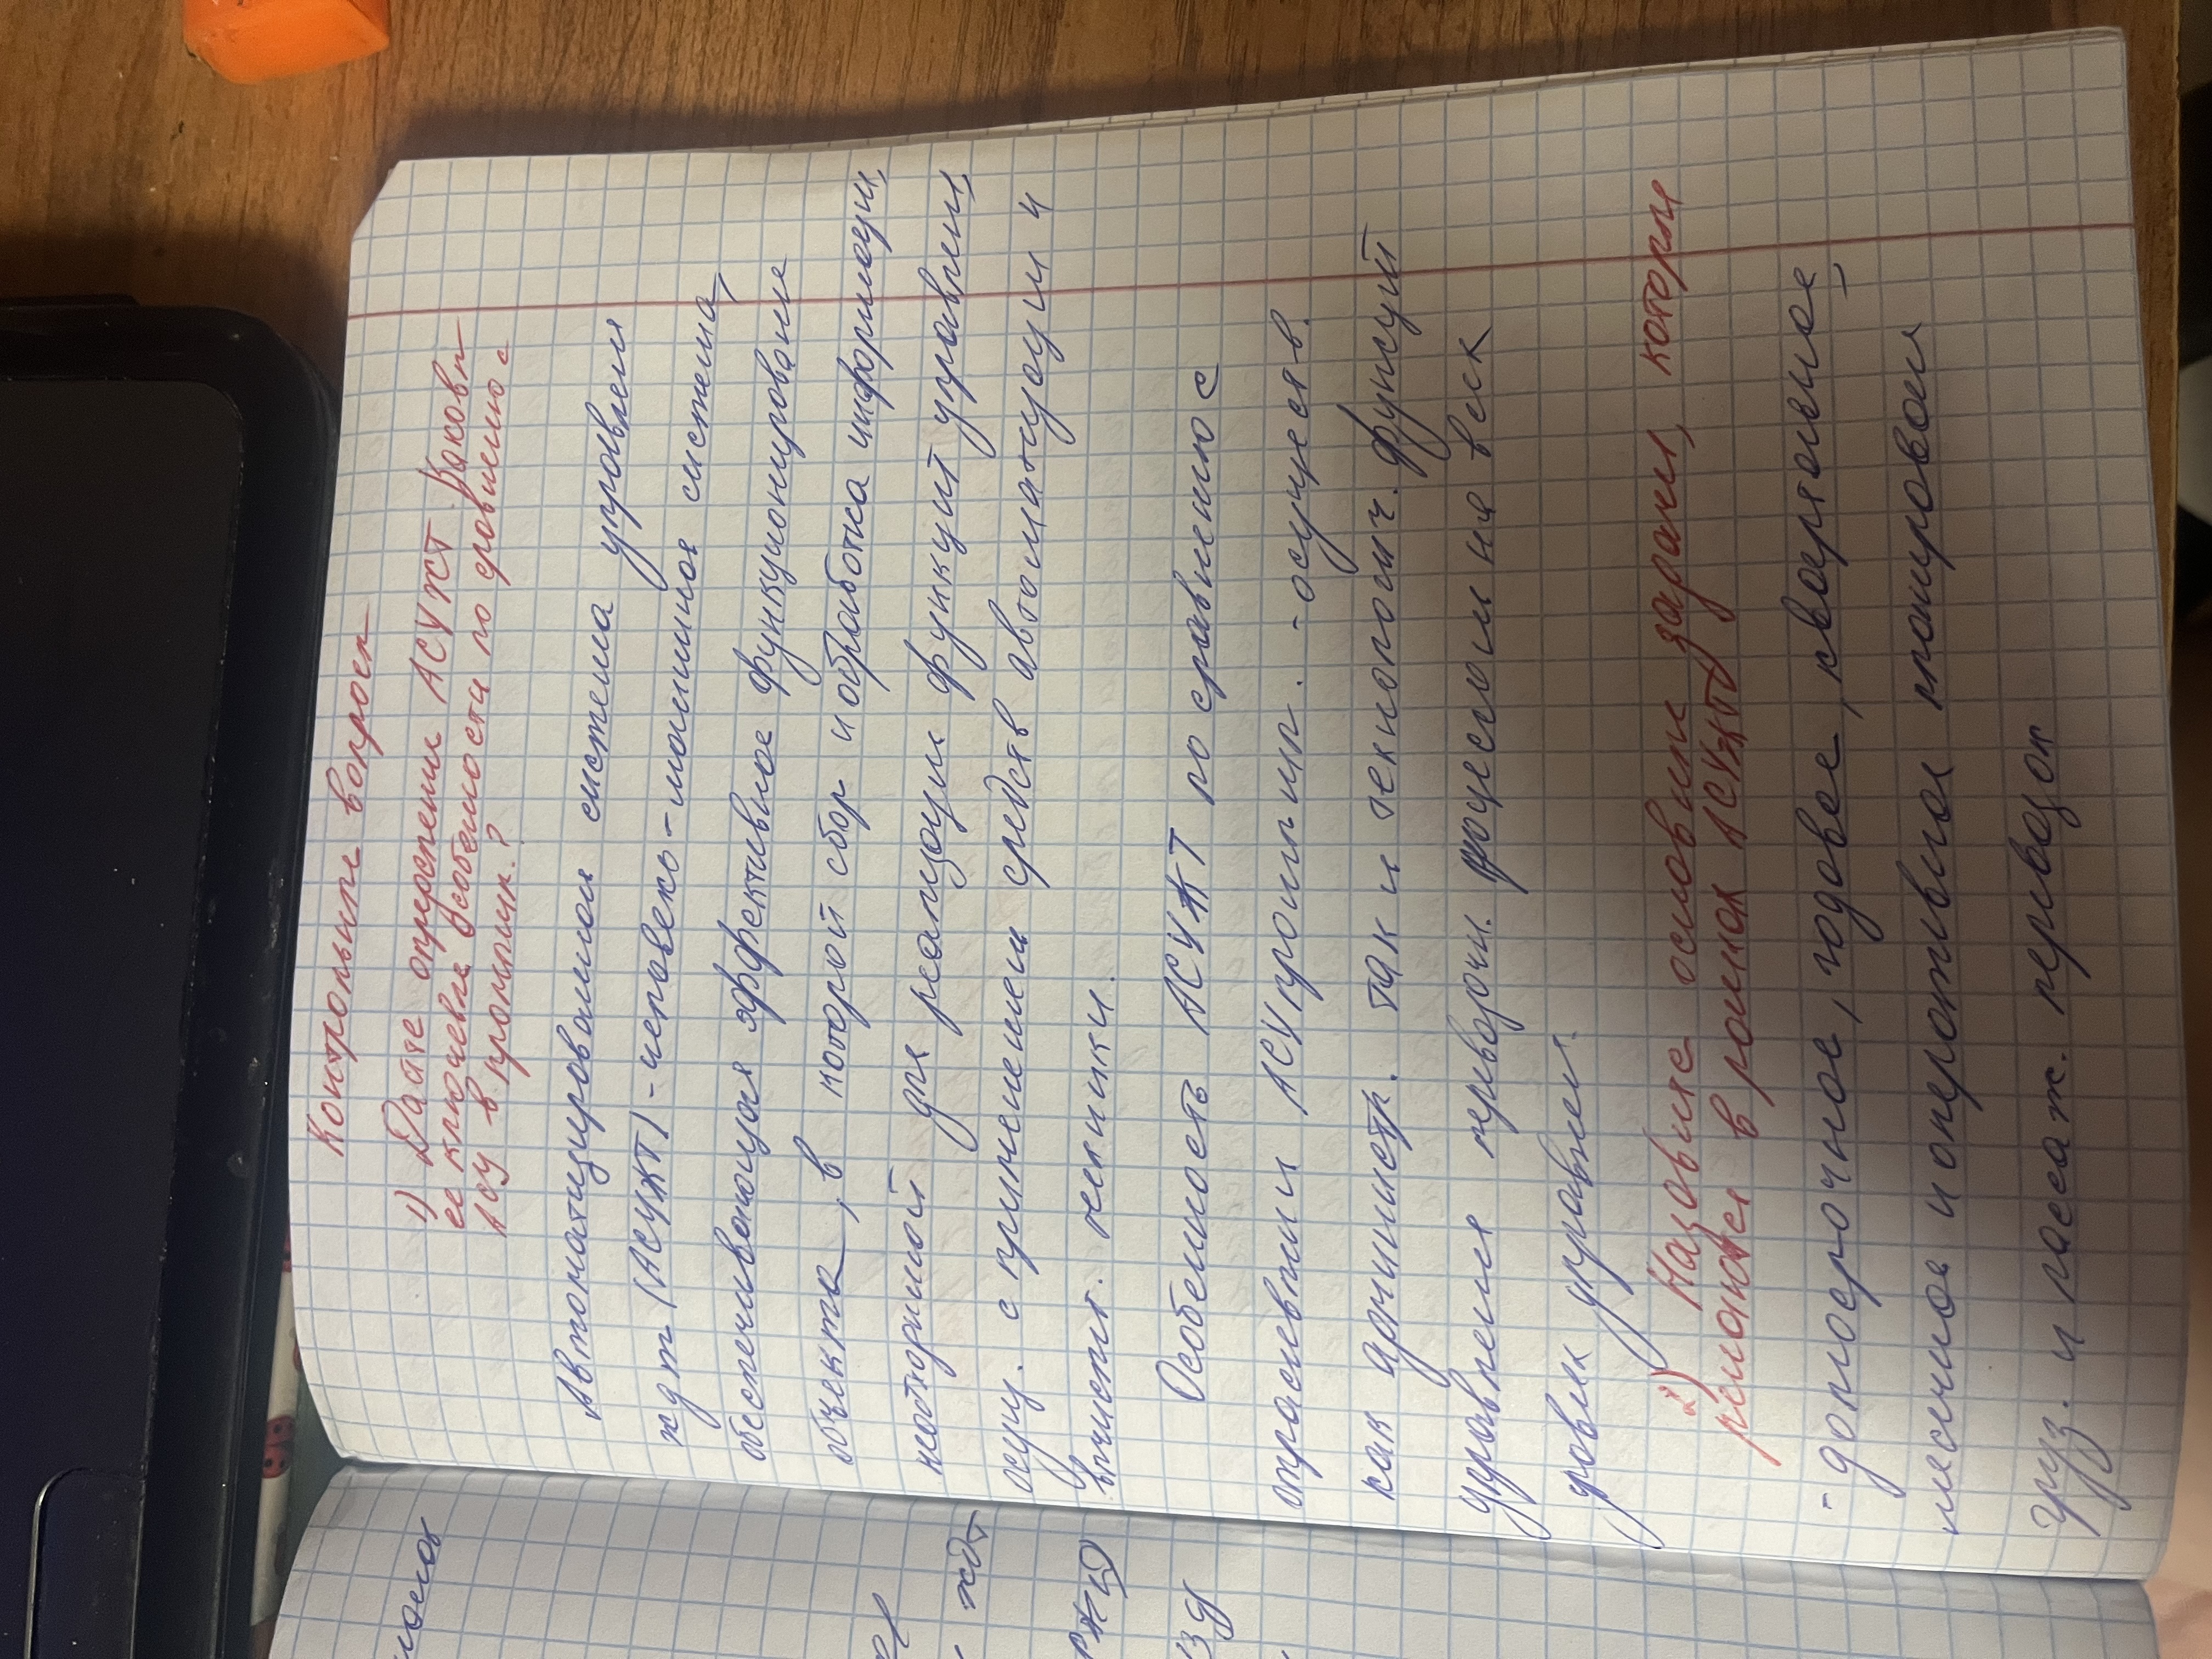 Контрольные вопросы
1) Дайте определение АСУЖТ. Каковы
ее ключевые особенности по сравнению с
АСУ в промышл.?
Автоматизированная система управления
ждт (АСУЖТ) - человеко-машинная система,
обеспечивающая эффективное функционирование
объекта, в которой сбор и обработка информации,
необходимой для реализации функций управления,
осущ. с применением средств автоматизации и
вычислит. техники.
Особенность АСУЖТ по сравнению с
отраслевыми АСУ промышл. - осуществ.
как администр. так и технологич. функций
управления перевозочн. процессом на всех
уровнях управления.
2) Назовите основные задачи, которые
решаются в рамках АСУЖТ?
- долгосрочное, годовое, квартальное,
месячное и оперативное планирование
груз. и пассаж. перевозок
ждт